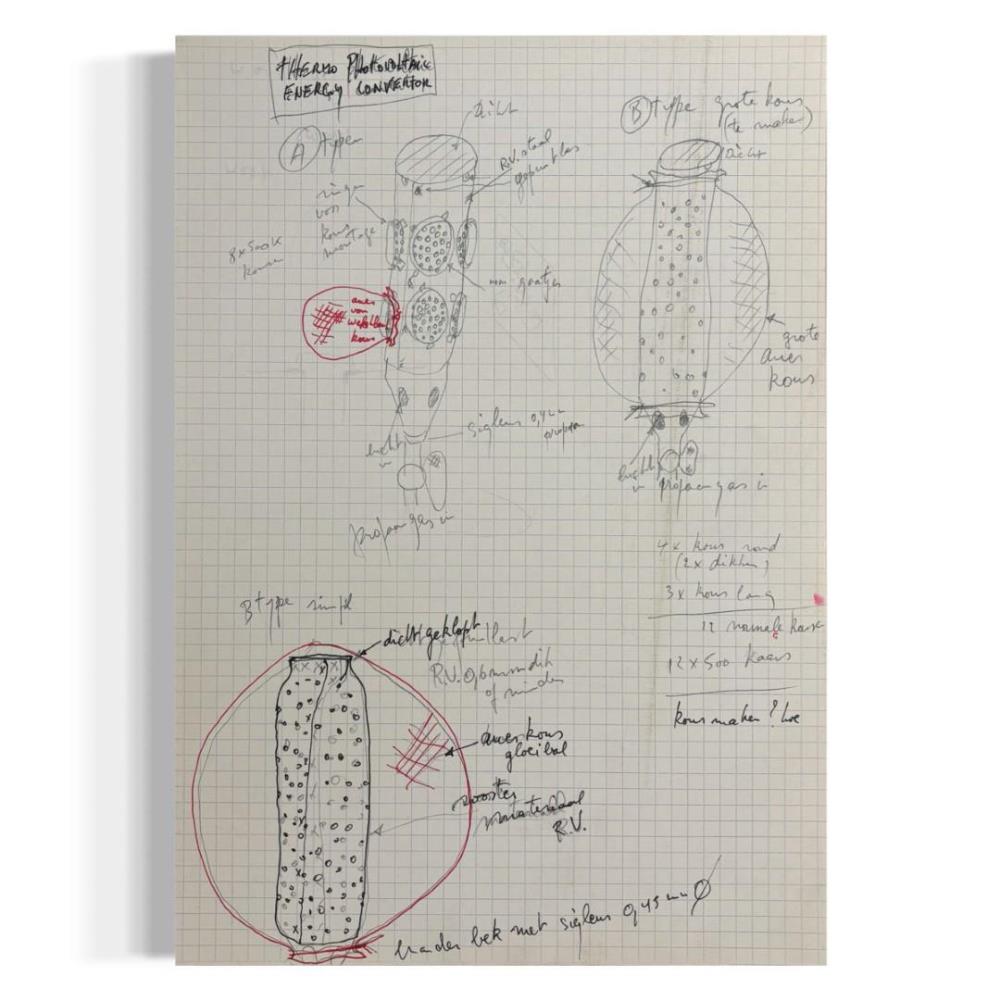 tHERMO PHOTOVOLTAIC
ENERGY CONVERTOR
A type
dicht
R.V. staal
B type grote kous
(te maken)
dicht
ringen
voor
kous
montage
8 x 500K
kousen
gaatjes
auer
von
kous
grote
auer
kous
lucht
in
0,4 mm
propaan gas in
lucht
in
propaan gas in
4 x kous rond
(2 x dikker)
3 x kous lang
12 normale kousen
12 x 500
kous maken? hoe
B type simpel
dicht geklopt
R.V. 0,6 mm dik
of minder
auerkous
gloeibol
rooster
materiaal
R.V.
brander bek met 0,45 mm Ø